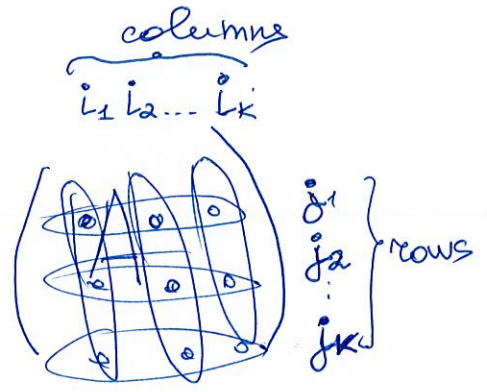 columns
i₁ i₂ ... iₖ
A
j₁
j₂
⋮
jₖ
rows